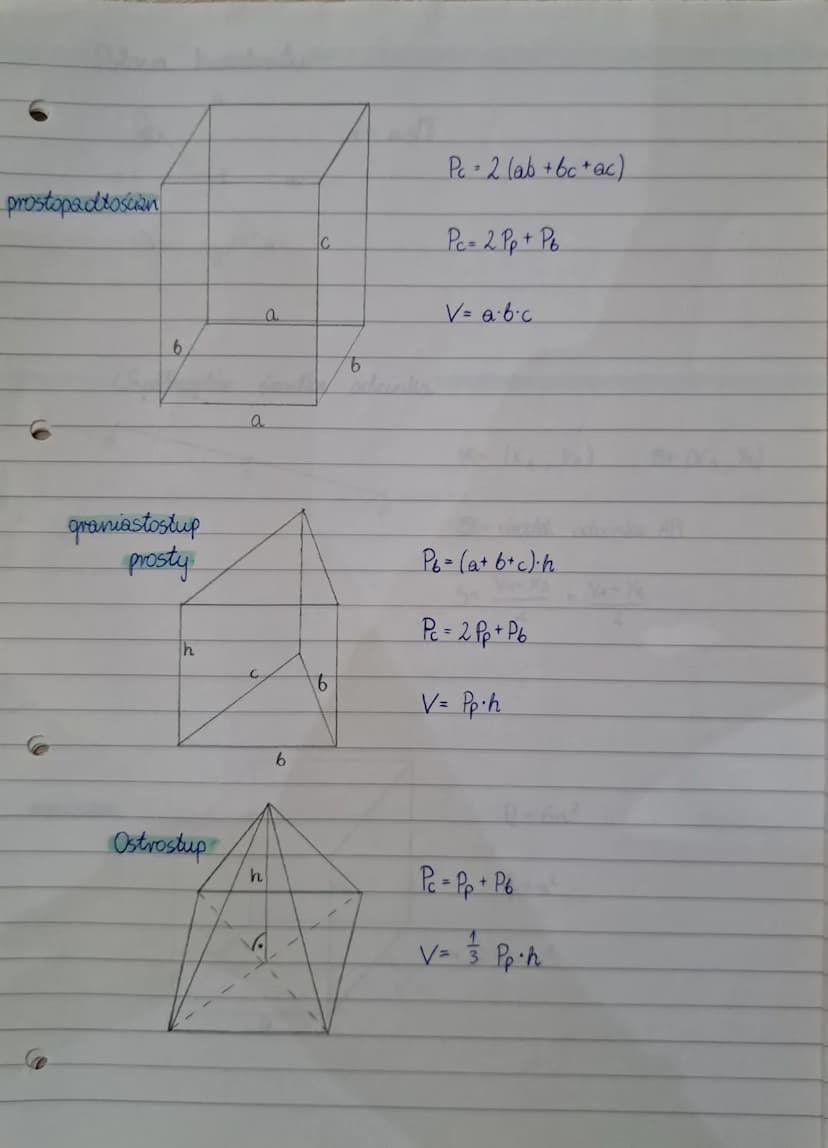 prostopadłościan
c
a
b
b
a
Pc = 2(ab + bc + ac)
Pc = 2Pp + Pb
V = a·b·c
graniastosłup
prosty
h
c
b
b
Pb = (a + b + c)·h
Pc = 2Pp + Pb
V = Pp·h
Ostrosłup
h
Pc = Pp + Pb
V = 1/3 Pp·h